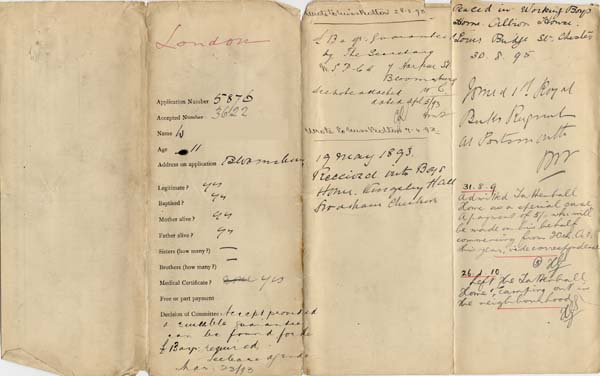 London
Application Number 5876
Accepted Number 3622
Name W
Age 11
Address on application Bloomsbury
Legitimate? yes
Baptised? yes
Mother alive? yes
Father alive? yes
Sisters (how many?) —
Brothers (how many?) —
Medical Certificate? yes
Free or part payment
Decision of Committee: Accept provided
a suitable guarantee
can be found for the
£ Bays required.
Mar. 23/93
guaranteed
by The Secretary
Harpur St
Bloomsbury
W.C.
See note attached
dated Apl 5/93
19 May 1893.
Received into Boys
Home. Kingsley Hall
Frodsham Cheshire
Placed in Working Boys
Home. Albion House.
Lower Bridge St. Chester
30. 8. 95
Joined 1st Royal
Bucks Regiment
at Portsmouth
31. 8. 9
Admitted Tattenhall
Home as a special case
A payment of 5/- will
be made on his behalf
commencing from 20th Oct
this year, vide correspondence
26. 10
Left the Tattenhall
Home, camping out in
the neighbourhood